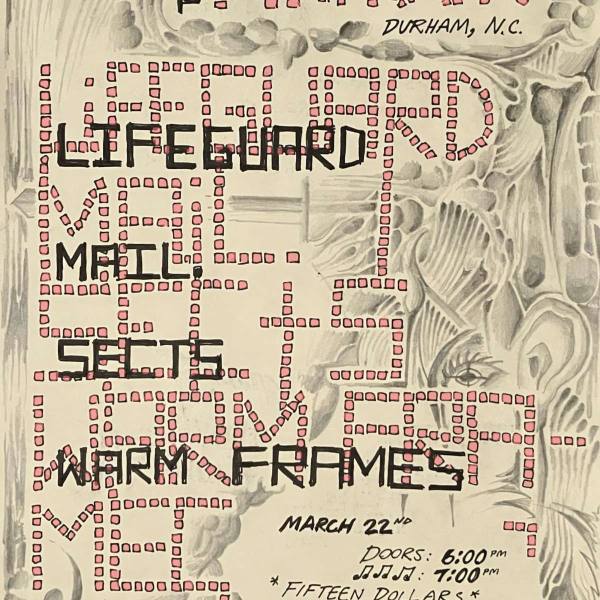 DURHAM, N.C.
LIFEGUARD
LIFEGUARD
MAIL.
MAIL.
SECTS
SECTS
WARM FRAMES
MARCH 22ND
DOORS: 6:00PM
♫♫♫: 7:00PM
*FIFTEEN DOLLARS*